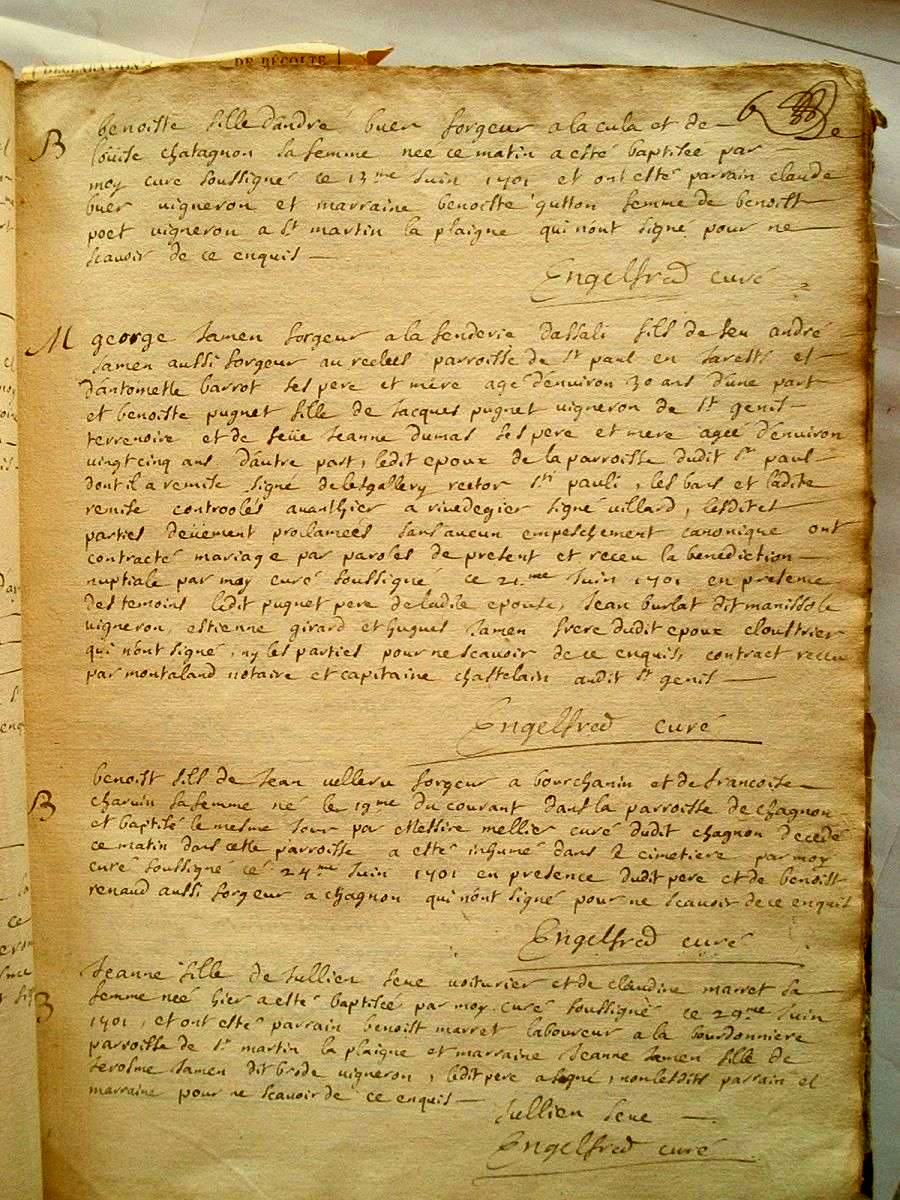 DECLARATION DE RÉCOLTE
6
B benoiste fille d'andré buer forgeur a la cula et de
louise chatagnon sa femme nee ce matin a esté baptisée par
moy curé soussigné ce 13me Juin 1701 et ont esté parrain claude
buer vigneron et marraine benoiste gutton femme de benoist
poet vigneron a st martin la plaigne qui n'ont signé pour ne
scavoir de ce enquis
Engelfred curé
M george Jamen forgeur a la fenderie d'assali fils de feu andré
Jamen aussi forgeur au recleës parroisse de st paul en Jarests et
d'antomette barrot ses pere et mère agé d'environ 30 ans d'une part
et benoiste pugnet fille de Jacques pugnet vigneron de st genis
terrenoire et de feüe Jeanne dumas ses pere et mere ageé d'environ
vingt cinq ans d'autre part, ledit epoux de la parroisse dudit st paul
dont il a remise signé rector sti pauli, les bans et ladite
remise controolés auanthier a rivedegier signé villard, lesdites
parties deüement proclamées sans aucun empeschement canonique ont
contracté mariage par paroles de present et receu la benediction
nuptiale par moy curé soussigné ce 21me Juin 1701 en presence
des temoins ledit pugnet pere de ladite epouse, Jean burlat dit manissole
vigneron, estienne girard et hugues Jamen frere dudit epoux clouttrier
qui n'ont signé, ny les parties pour ne scavoir de ce enquis, contract receu
par montaland notaire et capitaine chastelain audit st genis
Engelfred curé
B benoist fils de Jean velleru forgeur a bourchanin et de francoise
charuin sa femme né le 19me du courant dans la parroisse de chagnon
et baptisé le mesme Jour par Messire mellier curé dudit chagnon decedé
ce matin dans cette parroisse a esté inhumé dans le cimetiere par moy
curé soussigné cé 24me Juin 1701 en presence dudit pere et de benoist
renaud aussi forgeur a chagnon qui n'ont signé pour ne scavoir de ce enquis
Engelfred curé
B Jeanne fille de Jullien seue voiturier et de claudine marret sa
femme neé hier a esté baptisée par moy curé soussigné ce 29me Juin
1701, et ont esté parrain benoist marret laboureur a la bourdonniere
parroisse de st martin la plaigne et marraine Jeanne Jamen fille de
Jerosme Jamen dit brode vigneron, ledit pere a signé, non lesdits parrain et
marraine pour ne scavoir de ce enquis
Jullien seue
Engelfred curé